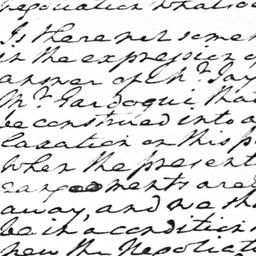 negotiation whatsoe
Is there not some
in the expression o
answer of Mr. Jay
Mr. Gardoqui that
be construed into a
laxation on this p
when the present
eangements are
away, and we sh
be in a condition
new the Negotiat